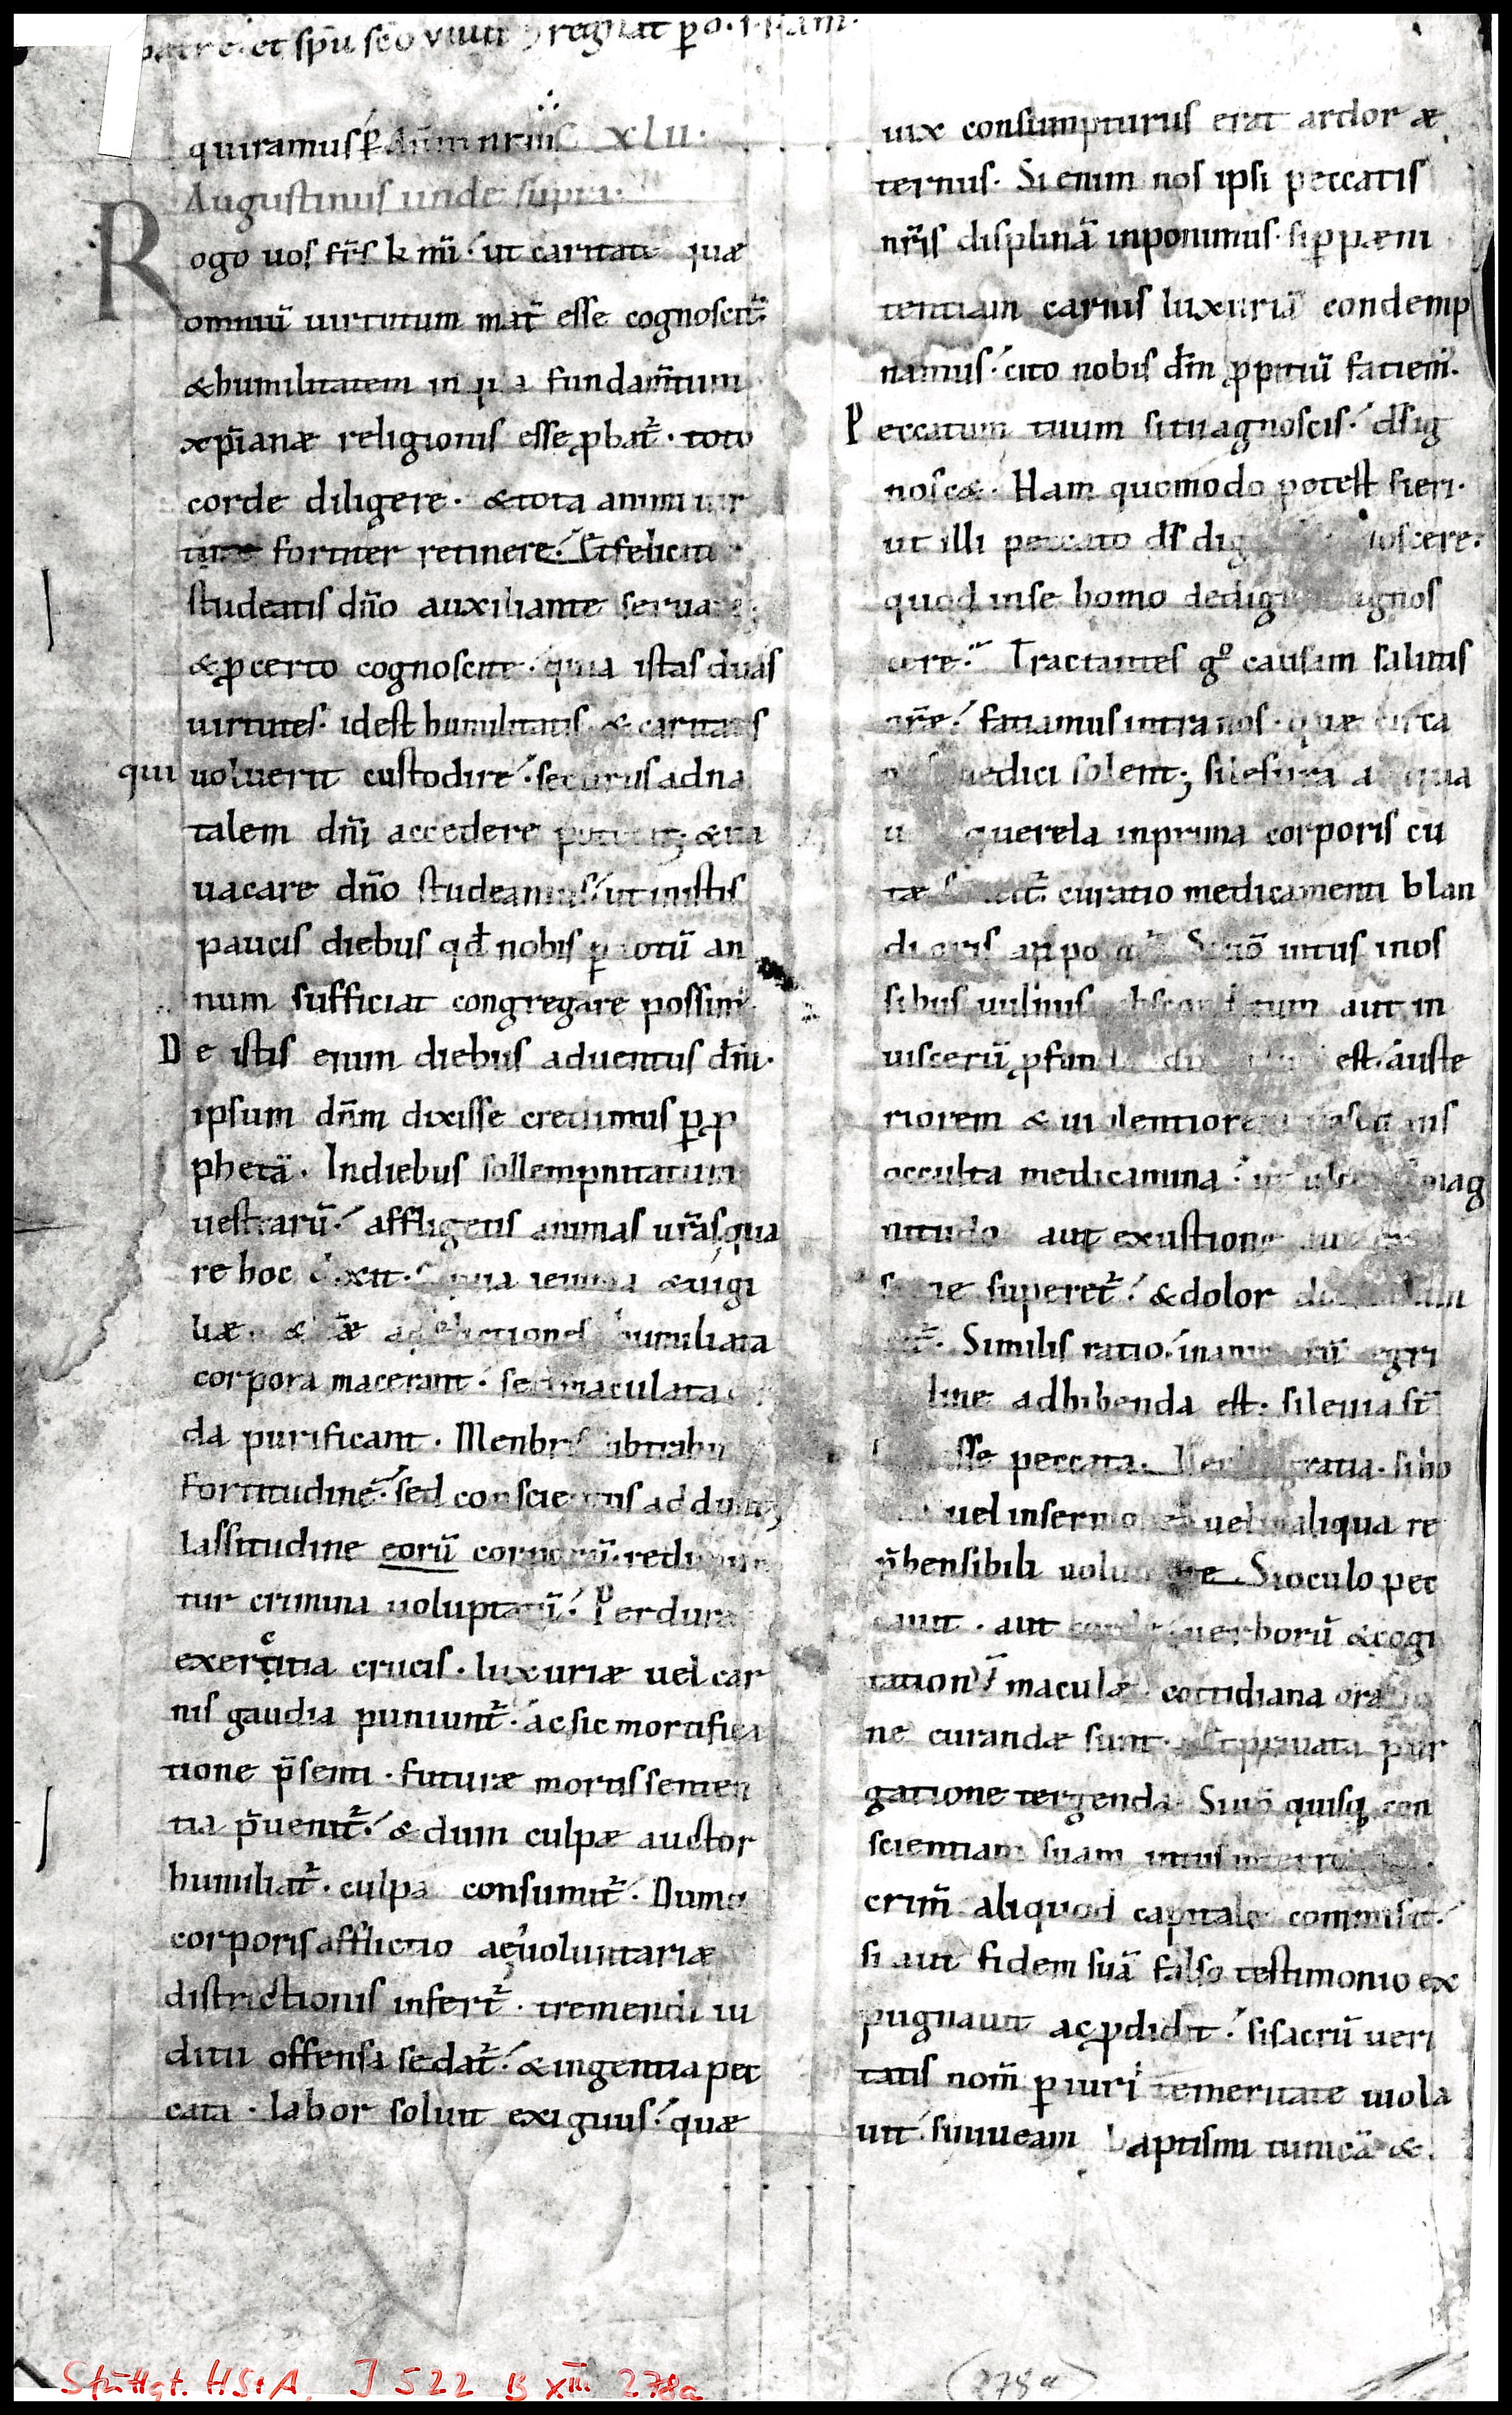 patre et sp̄u sc̄o viuit ⁊ regnat p̄ o.
quiramus ꝑ Dn̄m nr̄m XLII.
Augustinus unde supra.
Rogo uos fr̄s k mi ut caritatē quæ
omniū uirtutum mat̄ esse cognoscit̄
&humilitatem in qua fundam̄tum
xp̄ianæ religionis esse ꝓbat̄. toto
corde diligere. &tota animi uir
tute fortiter retinere. Et felicit
studeatis dn̄o auxiliante serua
&ꝓcerto cognoscite. quia istas duas
uirtutes. idest humilitatis & caritatis
qui uoluerit custodire. securus adna
talem dn̄i accedere poterit; &ita
uacare dn̄o studeamus. ut inistis
paucis diebus qd̄ nobis ꝑ totū an
num sufficiat congregare possim̄.
De istis enim diebus aduentus dn̄i.
ipsum dn̄m dixisse credimus ꝑ ꝓ
phetā. Indiebus sollempnitatum
uestrarū. affligetis animas ur̄as. qua
re hoc dixit. quia ieiunia &uigi
liæ. & afflictiones humiliata
corpora macerant. sed maculata
da purificant. Menbris subtrahu
fortitudinē. sed conscientiis addunt;
Lassitudine eorū corporū. redimun
tur crimina uoluptatū. Perdura
exercitia crucis. luxuriæ uel car
nis gaudia puniunt̄. ac sic mortifica
tione p̄senti. futuræ mortis senten
tia p̄uenit̄. & dum culpæ auctor
humiliat̄. culpa consumit̄. Dumq
corporis afflictio ac uoluntariæ
districtionis infert̄. tremendi iu
ditii offensa sedat̄. &ingentia pec
cata. labor soluit exiguus. quæ
uix consumpturus erat ardor æ
ternus. Si enim nos ipsi peccatis
nr̄is displinā inponimus. si ꝑ pæni
tentiam carnis luxuriā condemp
namus. cito nobis dn̄m ꝓpitiū fatiem̄.
Peccatum tuum si tu agnoscis. d̄s ig
noscæ. Nam quomodo potest fieri.
ut illi peccato d̄s dig noscere.
quod inse homo dedig agnos
cere. Tractantes gº causam salutis
nr̄æ. fatiamus intra nos. quæ circa
nos medici solent; si lesura aliqua
u querela inprima corporis cu
tæ curatio medicamenti blan
dioris appo Si uō intus inos
sibus uulnus absconditum aut in
uiscerū ꝓfun est. auste
riorem & uiolentiorem
occulta medicamina. ut mag
nitudo aut exustione
superet̄. & dolor
Similis ratio. inanimarū egri
tudine adhibenda est. si leuia st̄
esse peccata. Verbi gratia. si ho
uel insermone uel inaliqua re
p̄hensibili uoluntate. Si oculo pec
cauit. aut corde. uerborū &cogi
tationū maculæ. cottidiana oratio
ne curandæ sunt. Et priuata pur
gatione tergenda. Si uō quisq; con
scientiam suam intus
crim̄ aliquod capitale commisit.
si aut fidem suā falso testimonio ex
pugnauit ac ꝓdidit. si sacrū ueri
tatis nom̄ ꝑiurii temeritate uiola
uit. si niueam baptismi tunicā &
Stuttgt. HStA, J 522 B XIII 278a
(278a)